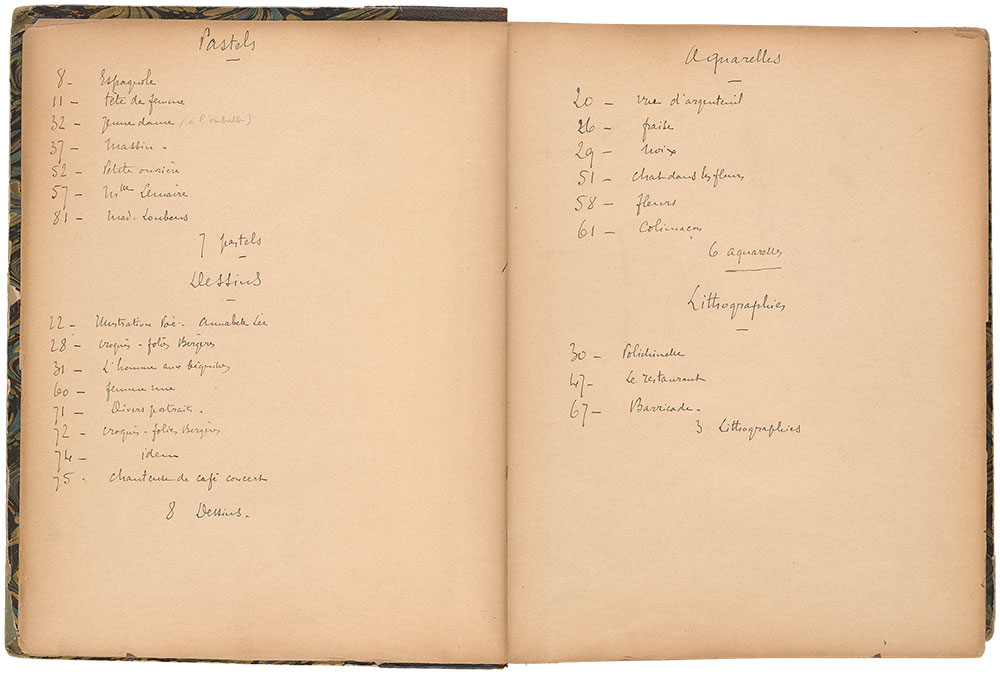 Pastels
8 - Espagnole
11 - tête de femme
32 - jeune dame (à l'ombrelle)
37 - Massin -
52 - Petite ouvrière
57 - Mlle Lemaire
81 - Mad. Loubens
7 pastels
Dessins
22 - Illustration Poë - Annabele Lée
28 - croquis - folies Bergères
31 - L'homme aux béquilles
60 - femme nue
71 - Divers portraits -
72 - croquis - folies Bergères
74 - idem
75 - chanteuse de café concert
8 Dessins -
Aquarelles
20 - vue d'argenteuil
26 - fraise
29 - noix
51 - chat dans les fleurs
58 - fleurs
61 - Colimaçon
6 aquarelles
Lithographies
30 - Polichinelle
47 - Le restaurant
67 - Barricade -
3 Lithographies